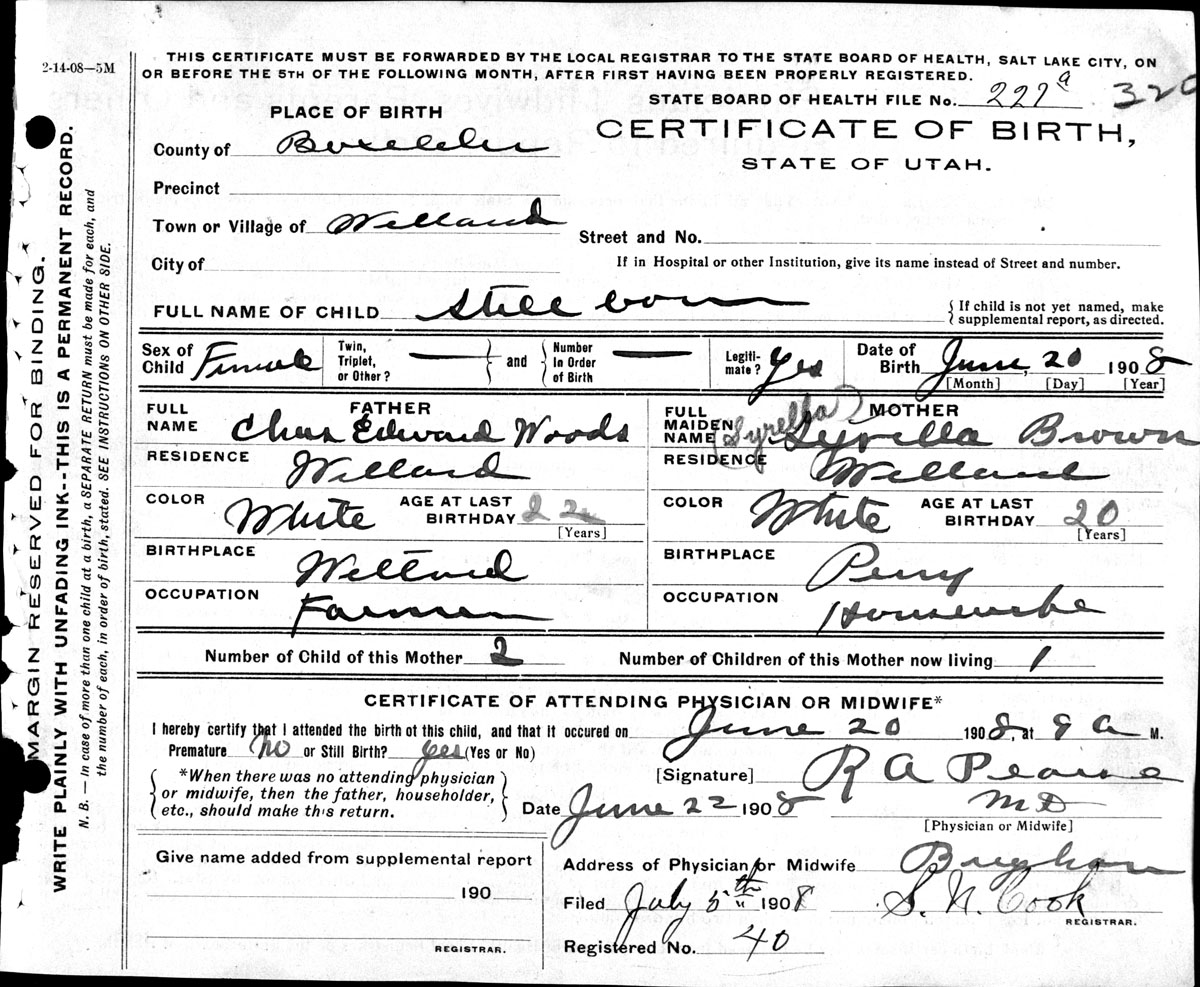 2-14-08—5M
THIS CERTIFICATE MUST BE FORWARDED BY THE LOCAL REGISTRAR TO THE STATE BOARD OF HEALTH, SALT LAKE CITY, ON
OR BEFORE THE 5TH OF THE FOLLOWING MONTH, AFTER FIRST HAVING BEEN PROPERLY REGISTERED.
STATE BOARD OF HEALTH FILE No. 227a 320
CERTIFICATE OF BIRTH,
STATE OF UTAH.
PLACE OF BIRTH
County of Boxelder
Precinct
Town or Village of Willard
City of
Street and No.
If in Hospital or other Institution, give its name instead of Street and number.
FULL NAME OF CHILD Still born
{If child is not yet named, make
supplemental report, as directed.
Sex of Child Female
Twin, Triplet, or Other? — and Number In Order of Birth —
Legitimate? Yes
Date of Birth June, 20 1908
[Month] [Day] [Year]
FATHER
FULL NAME Chas Edward Woods
RESIDENCE Willard
COLOR White AGE AT LAST BIRTHDAY 22
[Years]
BIRTHPLACE Willard
OCCUPATION Farmer
MOTHER
FULL MAIDEN NAME (Syrella) Syrella Brown
RESIDENCE Willard
COLOR White AGE AT LAST BIRTHDAY 20
[Years]
BIRTHPLACE Perry
OCCUPATION Housewife
Number of Child of this Mother 2 Number of Children of this Mother now living 1
CERTIFICATE OF ATTENDING PHYSICIAN OR MIDWIFE*
I hereby certify that I attended the birth of this child, and that it occured on June 20 1908, at 9 a M.
Premature No or Still Birth? yes (Yes or No)
*When there was no attending physician
or midwife, then the father, householder,
etc., should make this return.
[Signature] R A Pearse
M D
[Physician or Midwife]
Date June 22 1908
Give name added from supplemental report
190
REGISTRAR.
Address of Physician or Midwife Brigham
Filed July 5th 1908 S. N. Cook
REGISTRAR.
Registered No. 40
MARGIN RESERVED FOR BINDING.
WRITE PLAINLY WITH UNFADING INK--THIS IS A PERMANENT RECORD.
N. B. — In case of more than one child at a birth, a SEPARATE RETURN must be made for each, and
the number of each, in order of birth, stated. SEE INSTRUCTIONS ON OTHER SIDE.